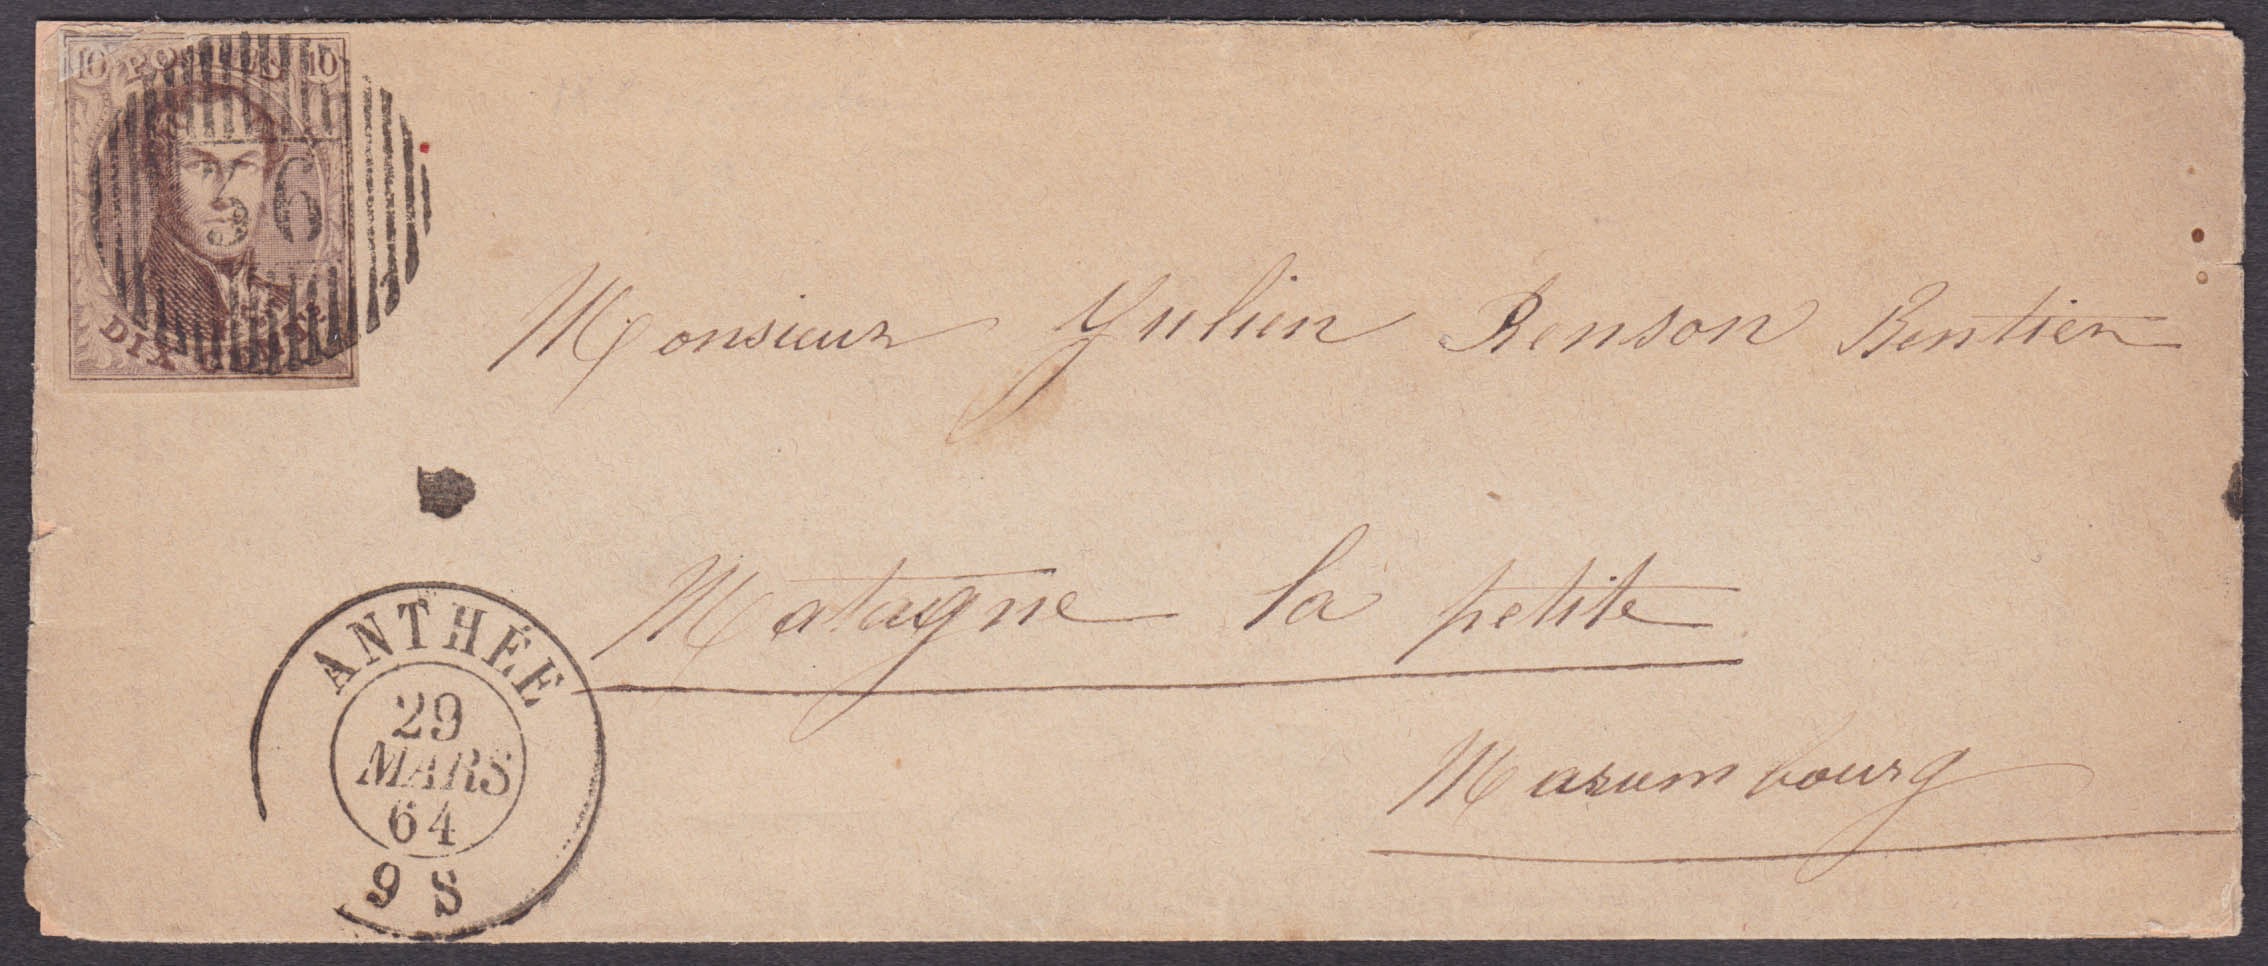 10 POSTES 10
36
DIX CENTIMES
Monsieur Julien Renson Rentier
Matagne la petite
Marembourg
ANTHÉE
29
MARS
64
9 S